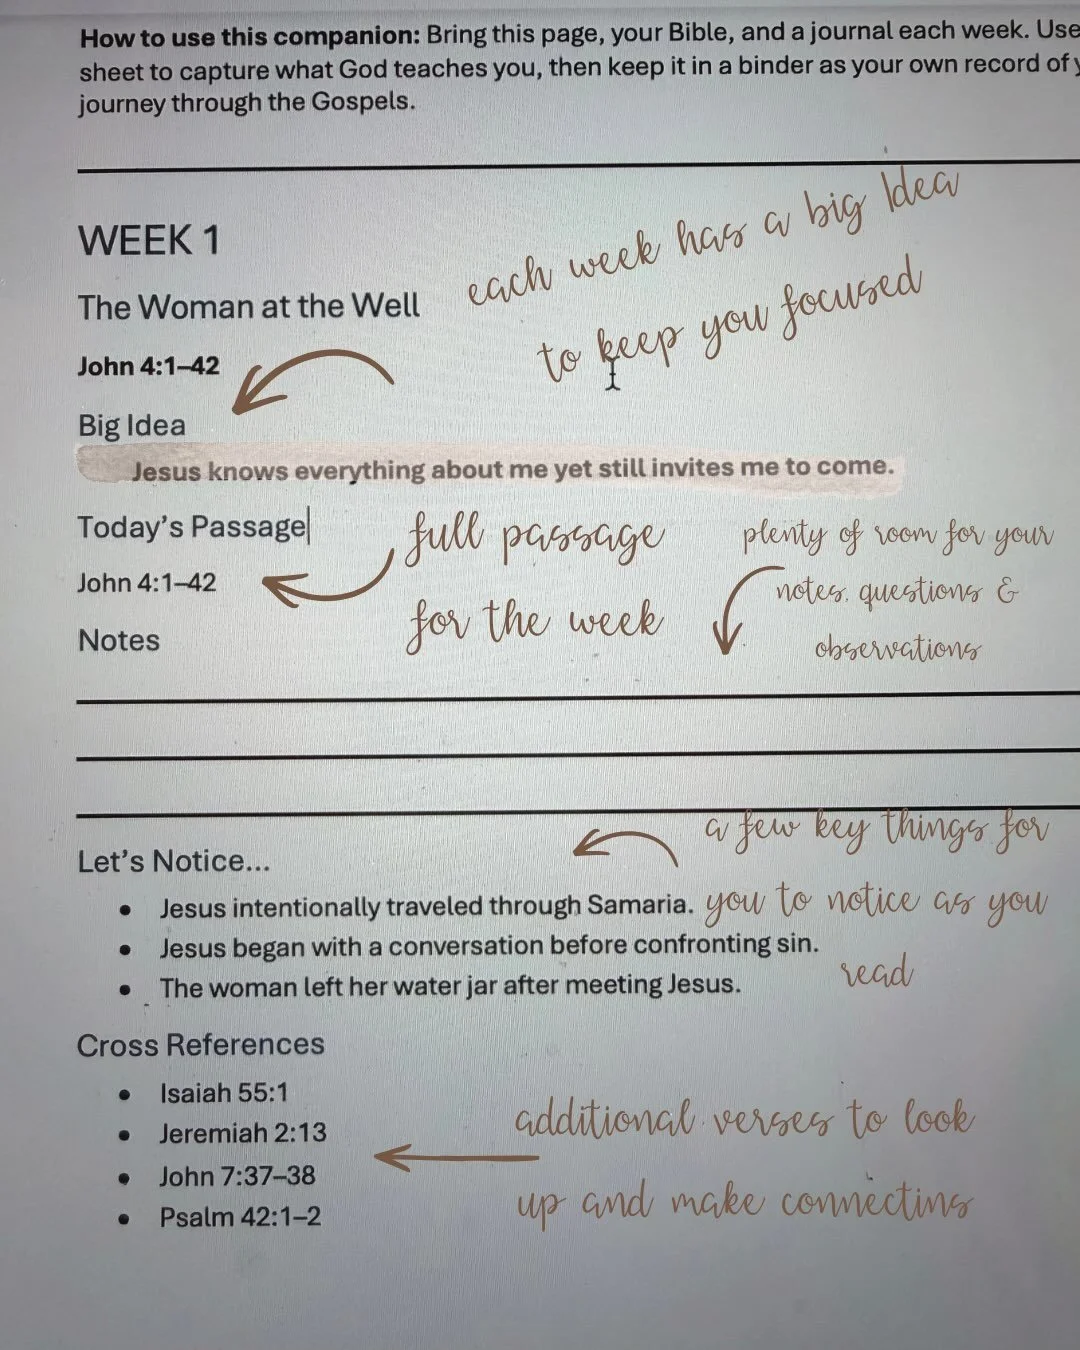 How to use this companion: Bring this page, your Bible, and a journal each week. Use
sheet to capture what God teaches you, then keep it in a binder as your own record of
journey through the Gospels.
WEEK 1
each week has a big Idea
to keep you focused
The Woman at the Well
John 4:1–42
Big Idea
Jesus knows everything about me yet still invites me to come.
Today's Passage
full passage
for the week
plenty of room for your
notes. questions &
observations
John 4:1–42
Notes
a few key things for
you to notice as you
read
Let's Notice...
• Jesus intentionally traveled through Samaria.
• Jesus began with a conversation before confronting sin.
• The woman left her water jar after meeting Jesus.
Cross References
• Isaiah 55:1
• Jeremiah 2:13
• John 7:37–38
• Psalm 42:1–2
additional verses to look
up and make connectins